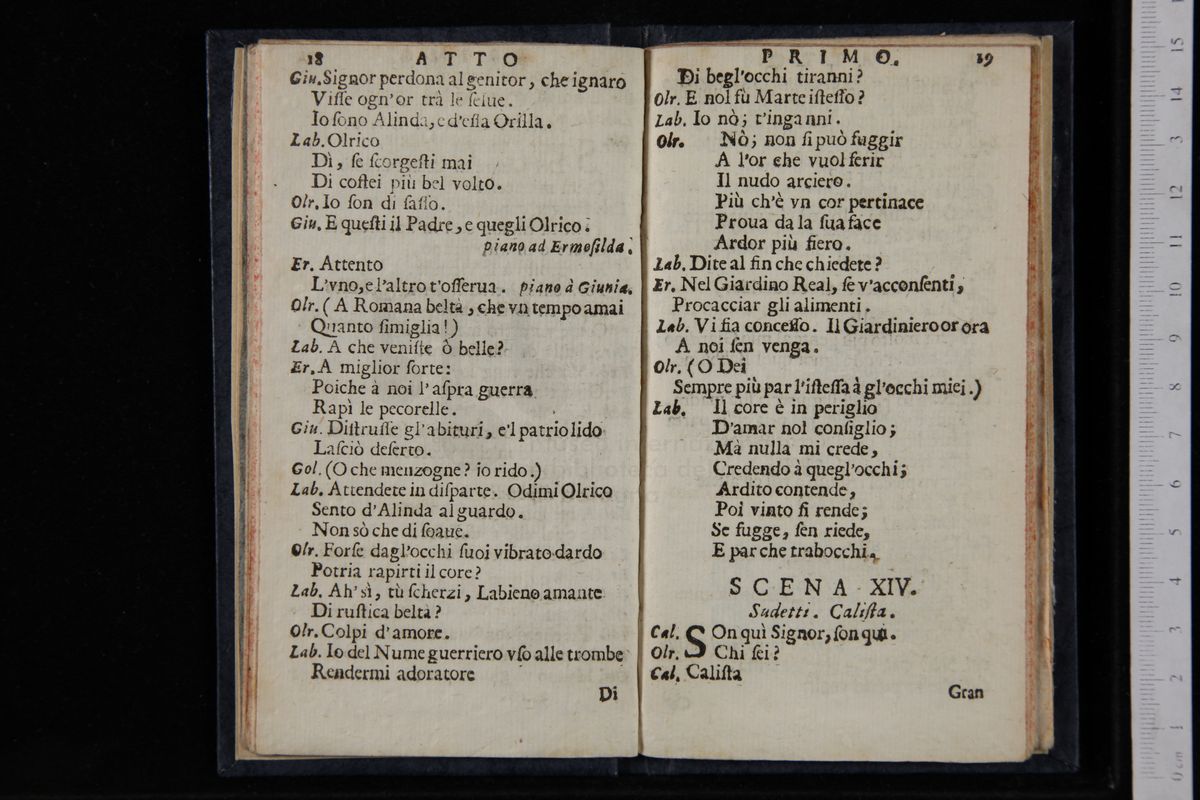 18 ATTO
Giu. Signor perdona al genitor, che ignaro
Viſſe ogn'or trà le ſelue.
Io ſono Alinda, e d'eſſa Orilla.
Lab. Olrico
Dì, ſe ſcorgeſti mai
Di coſtei più bel volto.
Olr. Io ſon di ſaſſo.
Giu. E queſti il Padre, e quegli Olrico.
piano ad Ermoſilda.
Er. Attento
L'vno, e l'altro t'oſſerua. piano à Giunia.
Olr. (A Romana beltà, che vn tempo amai
Quanto ſimiglia!)
Lab. A che veniſte ò belle?
Er. A miglior ſorte:
Poiche à noi l'aſpra guerra
Rapì le pecorelle.
Giu. Diſtruſſe gl'abituri, e'l patrio lido
Laſciò deſerto.
Gol. (O che menzogne? io rido.)
Lab. Attendete in diſparte. Odimi Olrico
Sento d'Alinda al guardo.
Non sò che di ſoaue.
Olr. Forſe dagl'occhi ſuoi vibrato dardo
Potria rapirti il core?
Lab. Ah' sì, tù ſcherzi, Labieno amante
Di ruſtica beltà?
Olr. Colpi d'amore.
Lab. Io del Nume guerriero vſo alle trombe
Rendermi adoratore
Di
PRIMO. 19
Di begl'occhi tiranni?
Olr. E nol fù Marte iſteſſo?
Lab. Io nò; t'inganni.
Olr. Nò; non ſi può fuggir
A l'or che vuol ferir
Il nudo arciero.
Più ch'è vn cor pertinace
Proua da la ſua face
Ardor più fiero.
Lab. Dite al fin che chiedete?
Er. Nel Giardino Real, ſe v'acconſenti,
Procacciar gli alimenti.
Lab. Vi ſia conceſſo. Il Giardiniero or ora
A noi ſen venga.
Olr. (O Dei
Sempre più par l'iſteſſa à gl'occhi miei.)
Lab. Il core è in periglio
D'amar nol conſiglio;
Mà nulla mi crede,
Credendo à quegl'occhi;
Ardito contende,
Poi vinto ſi rende;
Se fugge, ſen riede,
E par che trabocchi.
SCENA XIV.
Sudetti. Caliſta.
Cal. SOn quì Signor, ſon quì.
Olr. Chi ſei?
Cal. Caliſta
Gran
15
14
13
12
11
10
9
8
7
6
5
4
3
2
1
0 cm